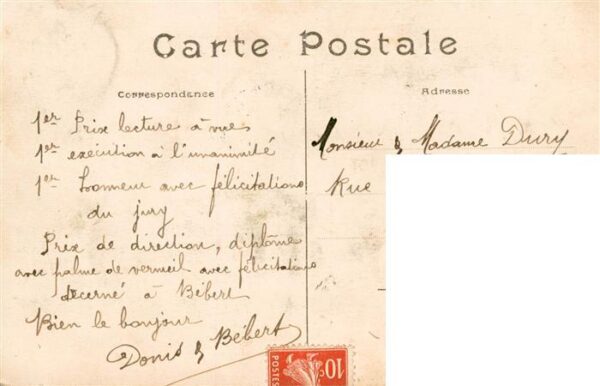 Carte Postale
Correspondance
Adresse
1er Prix lecture à vue
1er exécution à l'unanimité
1er honneur avec félicitations
du jury
Prix de direction, diplôme
avec palme de vermeil avec félicitations
décerné à Bébert
Bien le bonjour
Donis & Bébert
Monsieur & Madame Dury
Rue
POSTES
10c